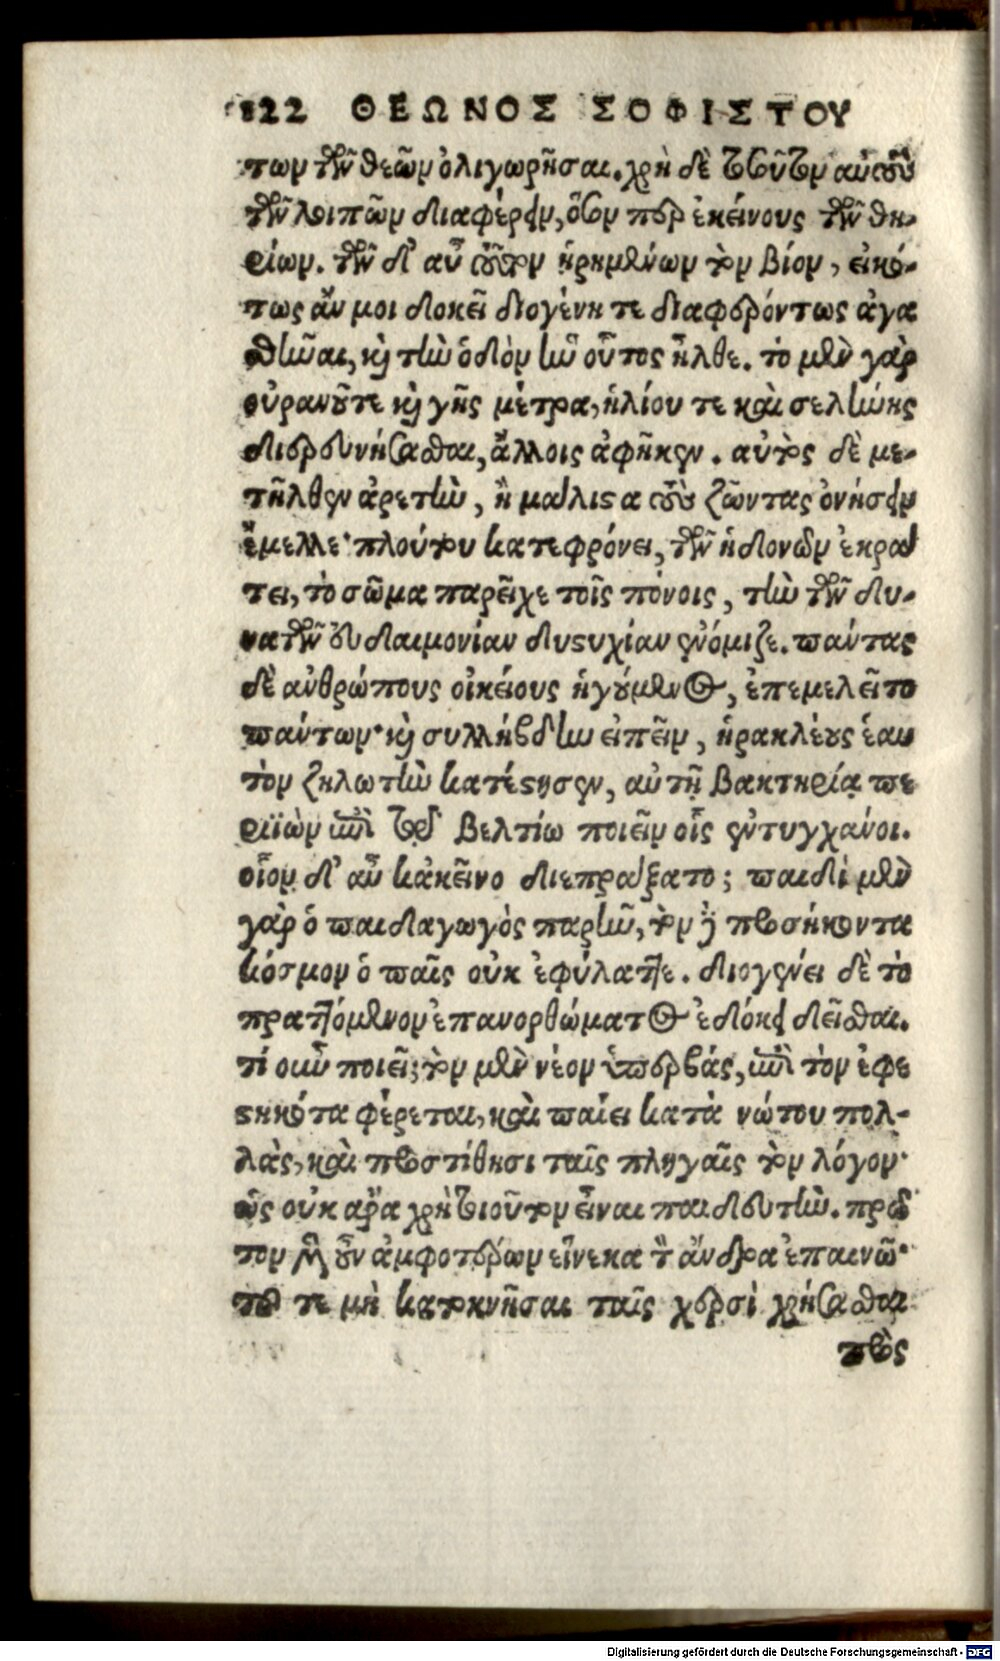 122 ΘΕΩΝΟΣ ΣΟΦΙΣΤΟΥ
των τῶν θεῶν ὀλιγωρῆσαι. χρὴ δὲ τοσοῦτον αὐτοὺς
τῶν λοιπῶν διαφέρειν, ὅσον περ ἐκείνους τῶν θη-
ρίων. τῶν δ' αὖ τοῦτον ᾑρημένων τὸν βίον, εἰκό-
τως ἄν μοι δοκεῖ διογένη τε διαφερόντως ἀγα
σθῆναι, καὶ τὴν ὁδὸν ἣν οὗτος ἦλθε. τὸ μὲν γὰρ
οὐρανοῦ τε καὶ γῆς μέτρα, ἡλίου τε καὶ σελήνης
διερευνήσασθαι, ἄλλοις ἀφῆκεν. αὐτὸς δὲ με-
τῆλθεν ἀρετὴν, ἣ μάλιστα τοὺς ζῶντας ὀνήσειν
ἔμελλε· πλούτου κατεφρόνει, τῶν ἡδονῶν ἐκρά
τει, τὸ σῶμα παρεῖχε τοῖς πόνοις, τὴν τῶν δυ-
νατῶν εὐδαιμονίαν δυστυχίαν ἐνόμιζε. πάντας
δὲ ἀνθρώπους οἰκείους ἡγούμενος, ἐπεμελεῖτο
πάντων· καὶ συλλήβδην εἰπεῖν, ἡρακλέους ἑαυ
τὸν ζηλωτὴν κατέστησεν, αὐτῇ βακτηρίᾳ πε
ριϊὼν ἐπὶ τῷ βελτίω ποιεῖν οἷς ἐντυγχάνοι.
οἷον δ' αὖ κἀκεῖνο διεπράξατο; παιδὶ μὲν
γὰρ ὁ παιδαγωγὸς παρῆν, τὸν δὲ προσήκοντα
κόσμον ὁ παῖς οὐκ ἐφύλαττε. διογένει δὲ τὸ
πραττόμενον ἐπανορθώματος ἐδόκει δεῖσθαι.
τί οὖν ποιεῖ; τὸν μὲν νέον ὑπερβάς, ἐπὶ τὸν ἐφε
στηκότα φέρεται, καὶ παίει κατὰ νώτου πολ-
λὰς, καὶ προστίθησι ταῖς πληγαῖς τὸν λόγον·
ὡς οὐκ ἄρα χρὴ τοιοῦτον εἶναι παιδευτὴν. πρῶ
τον μὲν οὖν ἀμφοτέρων εἵνεκα τὸν ἄνδρα ἐπαινῶ·
τοῦ τε μὴ κατοκνῆσαι ταῖς χερσὶ χρήσασθαι
πρὸς
Digitalisierung gefördert durch die Deutsche Forschungsgemeinschaft - DFG